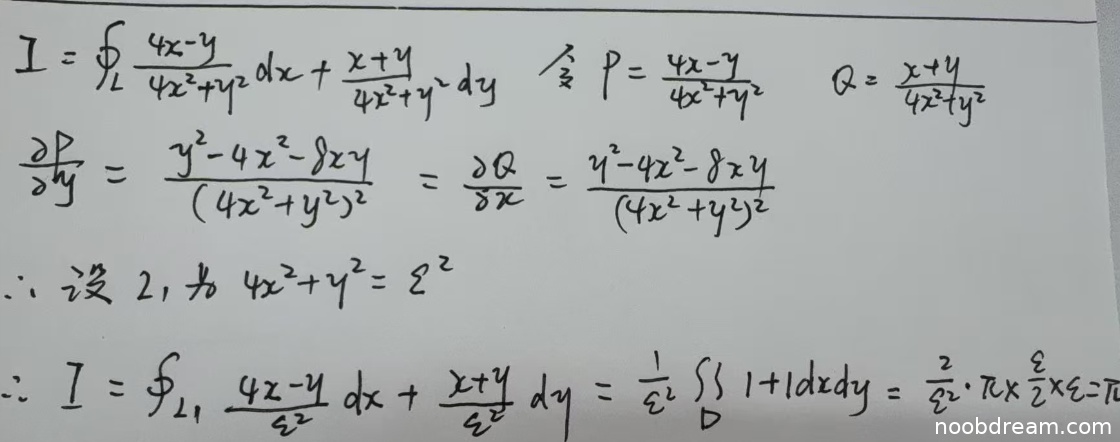 I = ∮_L (4x-y)/(4x²+y²) dx + (x+y)/(4x²+y²) dy 令 P = (4x-y)/(4x²+y²) Q = (x+y)/(4x²+y²)
∂P/∂y = (y²-4x²-8xy)/(4x²+y²)² = ∂Q/∂x = (y²-4x²-8xy)/(4x²+y²)²
∴ 设 L₁ 为 4x²+y² = ε²
∴ I = ∮_L₁ (4x-y)/ε² dx + (x+y)/ε² dy = 1/ε² ∬_D 1+1dxdy = 2/ε² · π × ε/2 × ε = π
noobdream.com